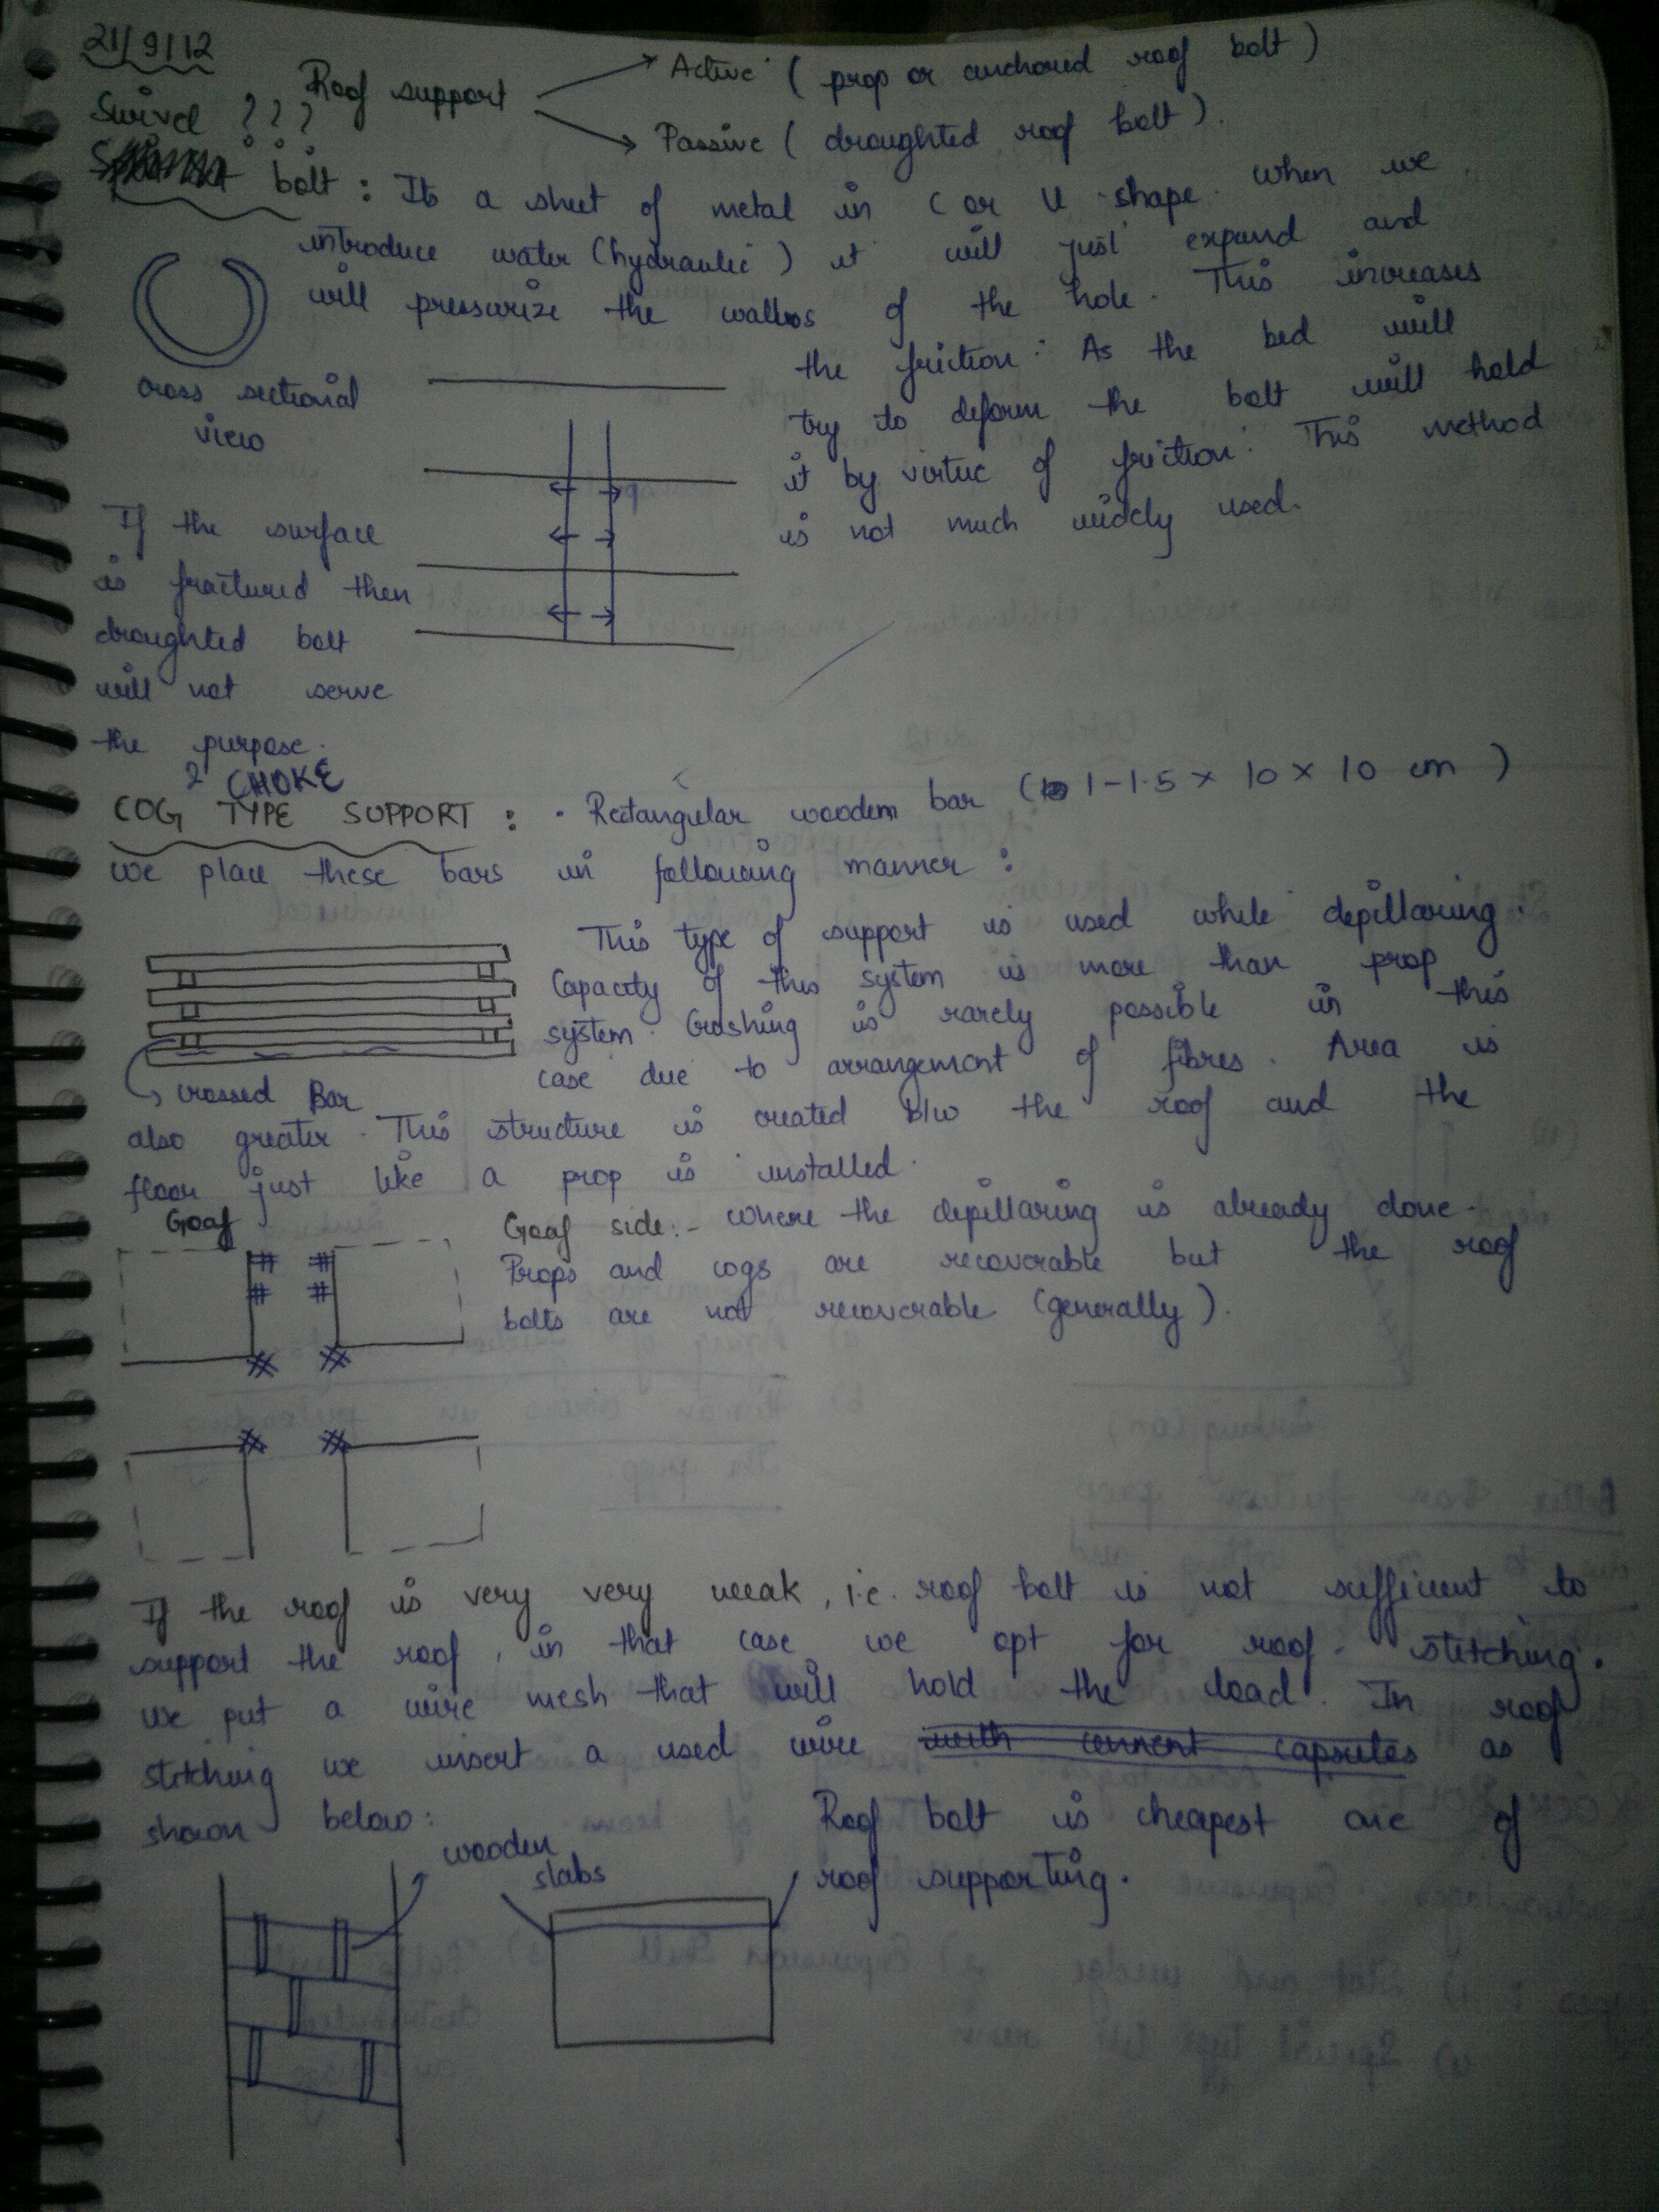 21/9/12
Roof support
Active (prop or anchored roof bolt)
Passive (droughted roof bolt).
Swivel ???
bolt : Its a sheet of metal in C or U shape. When we
introduce water (hydraulic) it will just expand and
will pressurize the walls of the hole. This increases
the friction. As the bed will
try to deform the bolt will hold
it by virtue of friction. This method
is not much widely used.
cross sectional
view
If the surface
is fractured then
droughted bolt
will not serve
the purpose.
CHOKE
COG TYPE SUPPORT : · Rectangular wooden bar ( 1-1.5 × 10 × 10 cm )
we place these bars in following manner :
This type of support is used while depillaring.
Capacity of this system is more than prop
system. Crushing is rarely possible in this
case due to arrangement of fibres. Area is
crossed Bar
also greater. This structure is created b/w the roof and the
floor just like a prop is installed.
Goaf
Goaf side:- where the depillaring is already done.
Props and cogs are recoverable but the roof
bolts are not recoverable (generally).
If the roof is very very weak, i.e. roof bolt is not sufficient to
support the roof, in that case we opt for roof-stitching.
we put a wire mesh that will hold the load. In roof
stitching we insert a used wire with cement capsules as
shown below:
Roof bolt is cheapest one of
roof supporting.
wooden
slabs